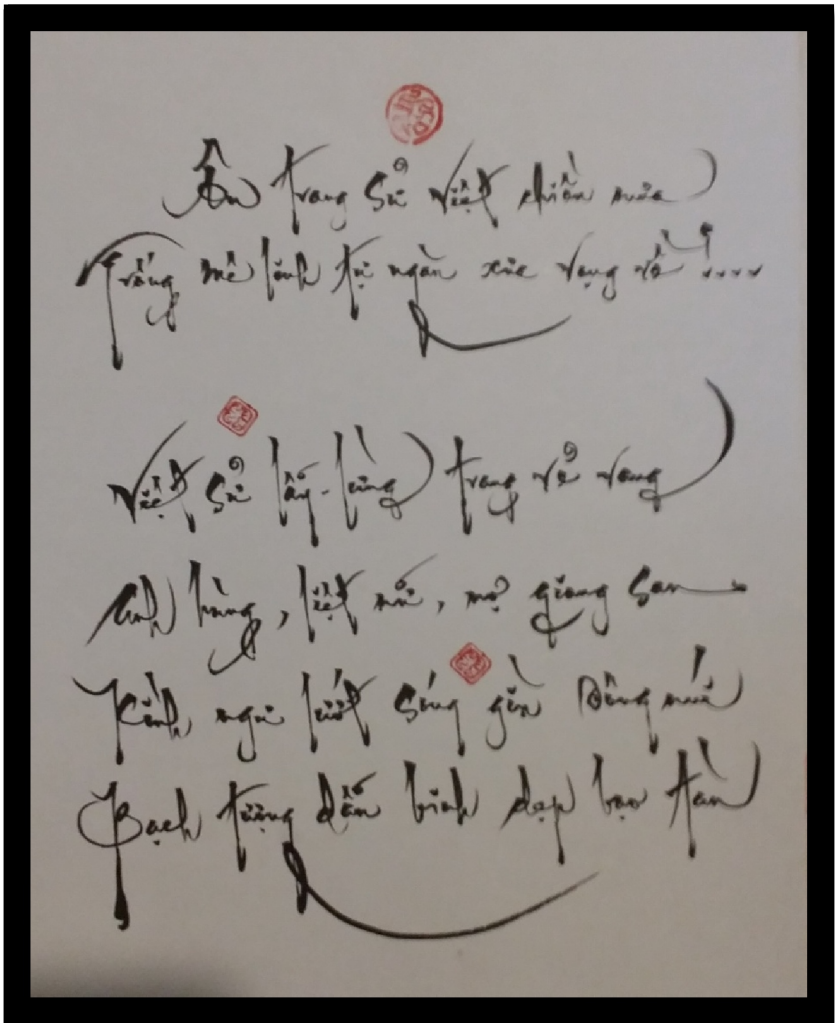 Ôn trang Sử Việt chiều mưa
Trống mê linh tự ngàn xưa vọng về !....
Việt Sử lẫy-lừng trang vẻ vang
Anh hùng, liệt nữ, mở giang San
Kình ngư lướt Sóng gìn Dòng nước
Bạch tượng dấn binh dẹp bạo tàn